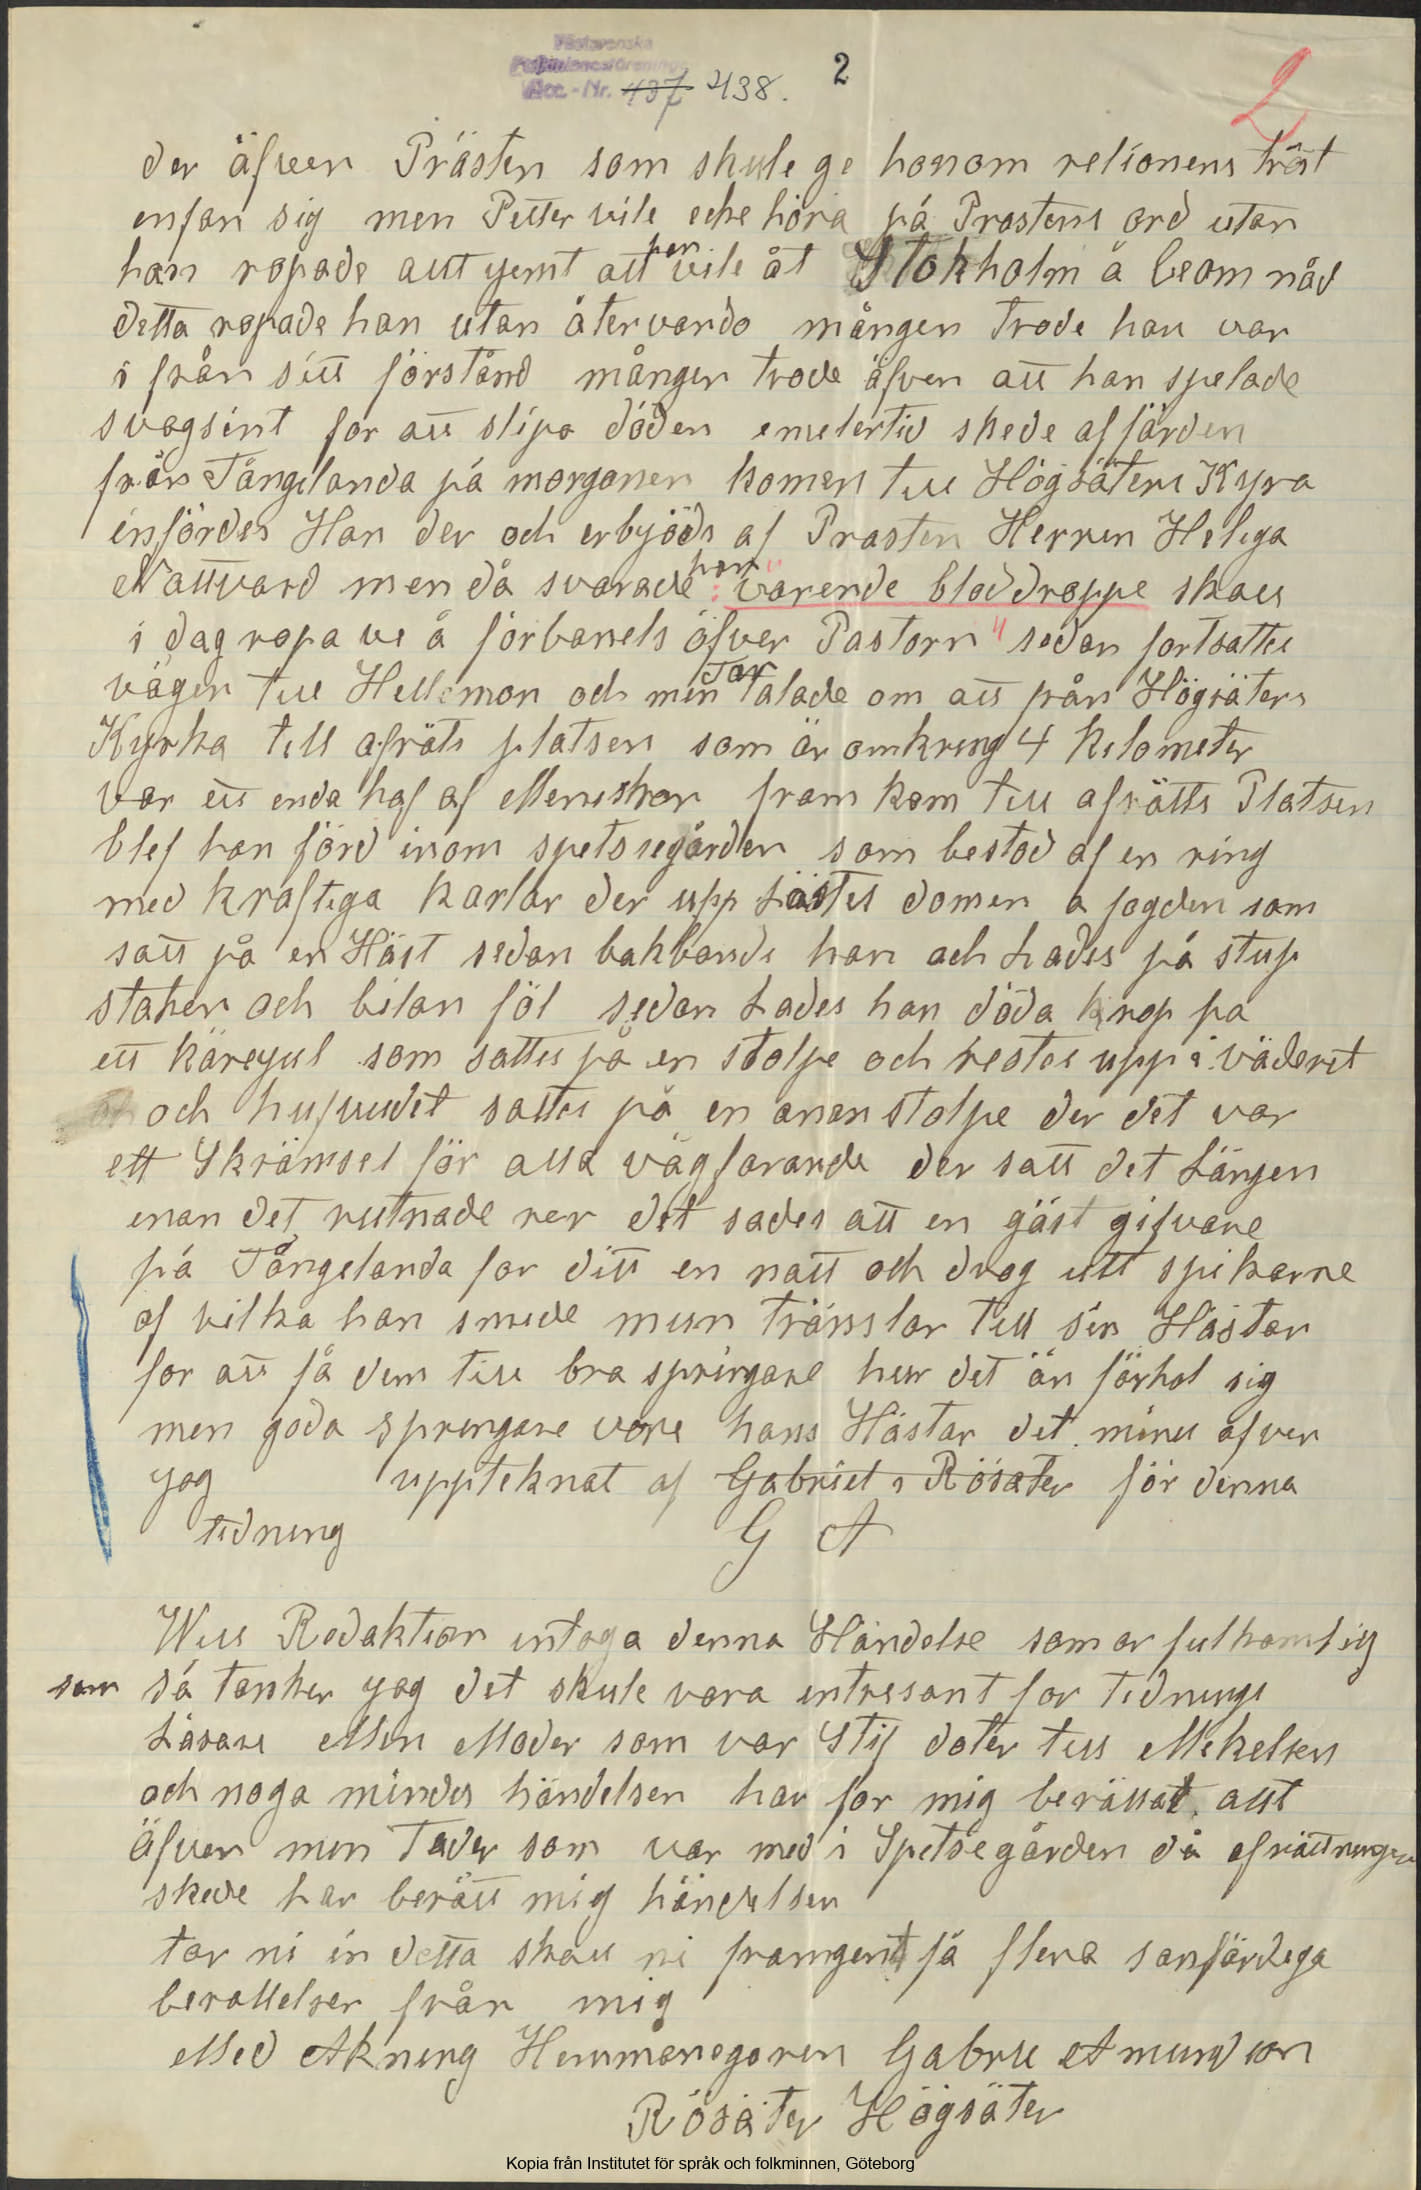 Västsvenska
Folkminnesförening
Acc.-Nr. 437 438.
2
2
der äfven Prästen som skule ge honom relionens tröst
enfan sig men Petter vile eche höra på Prastens ord utan
han ropade allt yemt att han vile åt Stokholm å beom nåd
detta ropade han utan återvardo mången trode han var
i från sitt förstånd mången trode äfven att han spelade
svagsint for att slipa döden emelertid skede affärden
från Tångelanda på morgonen komen till Högsäters Kyra
infördes Han der och erbjöds af Prasten Herren Heliga
Nattvard men då svarade han: "varende bloddroppe skall
i dag ropa ve å förbanels öfver Pastorn" sedan fortsattes
vägen till Hellemon och min Far talade om att från Högsäters
Kyrka till afräts platsen som är omkring 4 kilometer
var ett enda haf af Meniskor fram kom till afrätts Platsen
blef han förd inom spetsegården som bestod af en ring
med kraftiga karlar der upp Lästes domen a fogden som
satt på en Häst sedan bakbands han och Lades på stup
staken och bilan föl sedan Lades han döda krop pa
ett käreyul som sattes på en stolpe och restes upp i väderet
och hufvudet sattes på en anan stolpe der det var
ett Skrämsel för alla vägfarande der satt det Längen
enan det rutnade ner det sades att en gäst gifvare
på Tångelanda for ditt en natt och drog utt spikarne
af vilka han smide mun tränslar till sin Hästar
for att få dem till bra springare hur det än förhol sig
men goda springare vore hans Hästar det mines äfven
yag uppteknat af Gabriel i Rösäter för denna
tidning G A
Will Redaktion intaga denna Händelse som ar fulkomlig
som så tanker yag det skule vara intresant for tidnings
Läsare Min Moder som var Stif doter till Mikelsen
och noga mindes händelsen har for mig berättat allt
Äfven min Fader som var med i Spetsegården då afrättningen
skede har berätt mig händelsen
tar ni in detta skall ni framgent få flera sanfärdiga
berattelser från mig
Med Akning Hemmanegaren Gabriel Amundson
Rösäter Högsäter
Kopia från Institutet för språk och folkminnen, Göteborg